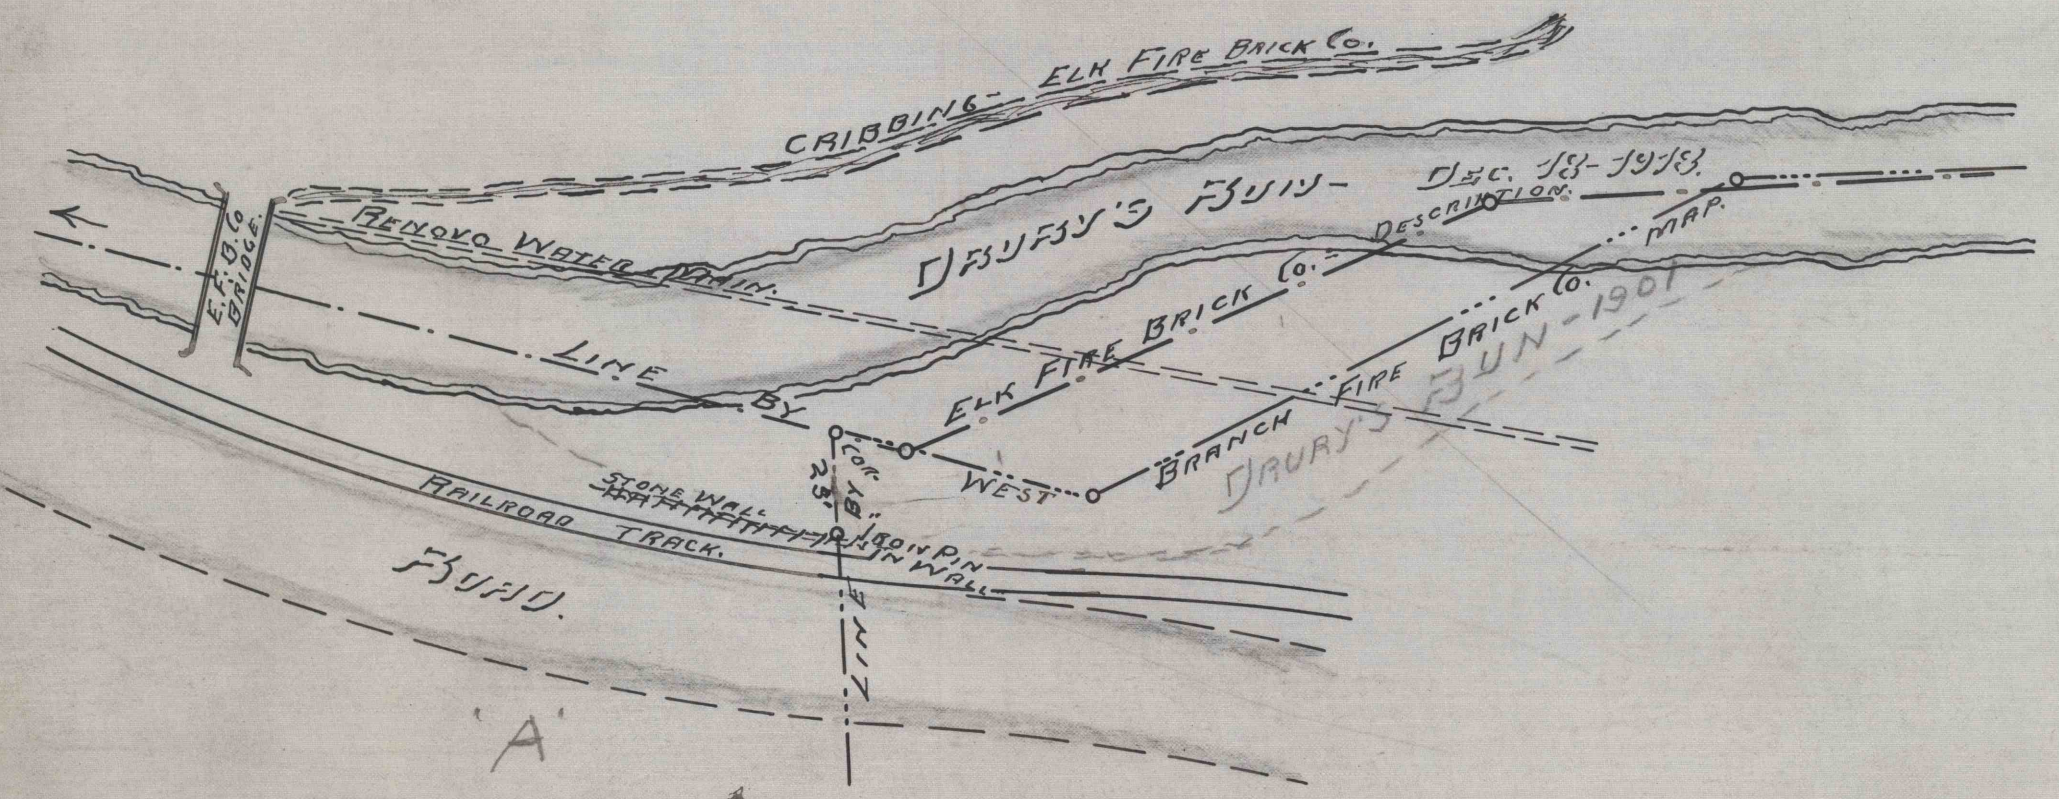 CRIBBING- ELK FIRE BRICK Co.
E.F.B.Co
BRIDGE.
RENOVO WATER MAIN.
DRURY'S RUN- DEC. 18-1918.
LINE BY ELK FIRE BRICK Co.- DESCRIPTION.
WEST BRANCH FIRE BRICK Co. MAP.
DRURY'S RUN-1901
COR.
BY
25'
STONE WALL
IRON PIN
IN WALL
RAILROAD TRACK.
ROAD.
LINE
'A'